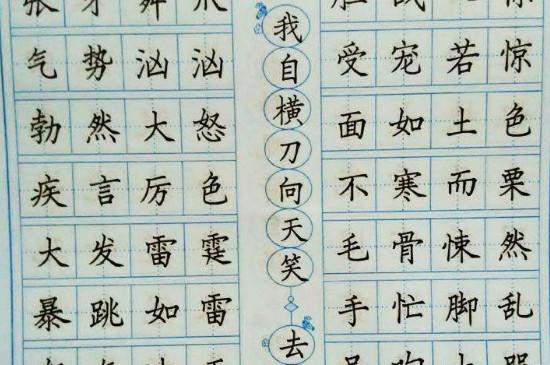 张牙舞爪
气势汹汹
勃然大怒
疾言厉色
大发雷霆
暴跳如雷
我自横刀向天笑
去
胆战心惊
受宠若惊
面如土色
不寒而栗
毛骨悚然
手忙脚乱